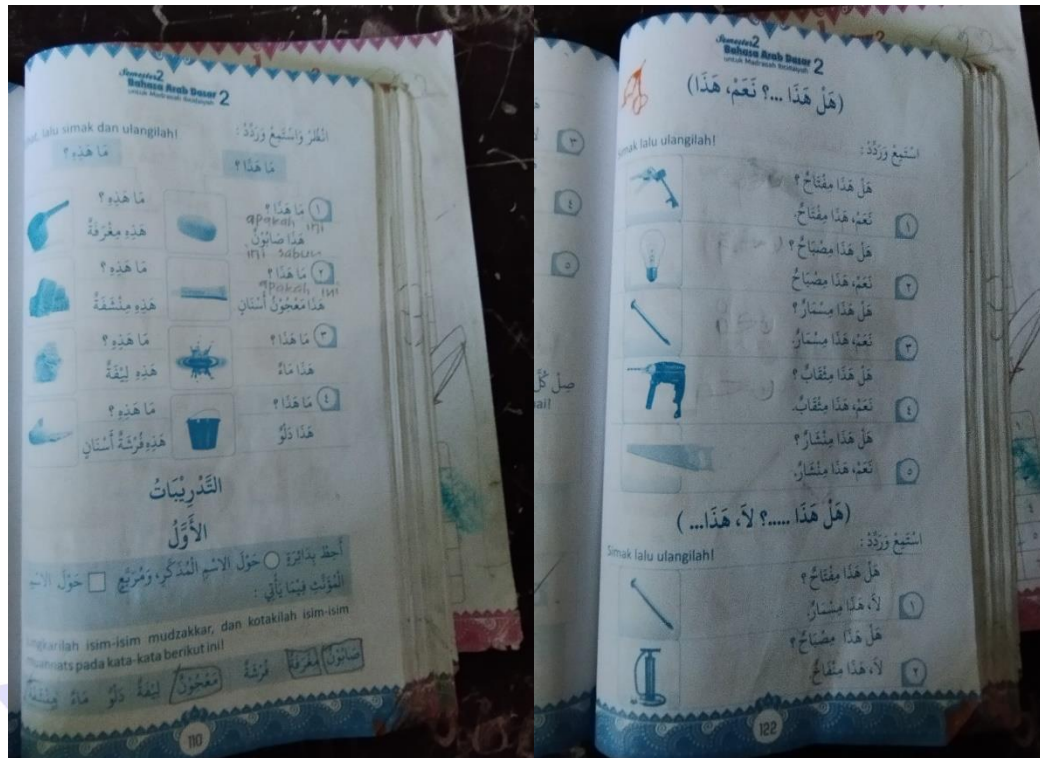 Semester 2
Bahasa Arab Dasar 2
untuk Madrasah Ibtidaiyah
انْظُرْ وَاسْتَمِعْ وَرَدِّدْ :
lalu simak dan ulangilah!
مَا هَذَا ؟
مَا هَذِهِ ؟
١ مَا هَذَا ؟
apakah ini
هَذَا صَابُوْنٌ
ini sabun
٢ مَا هَذَا ؟
apakah ini
هَذَا مَعْجُوْنُ أَسْنَانٍ
٣ مَا هَذَا ؟
هَذَا مَاءٌ
٤ مَا هَذَا ؟
هَذَا دَلْوٌ
مَا هَذِهِ ؟
هَذِهِ مِغْرَفَةٌ
مَا هَذِهِ ؟
هَذِهِ مِنْشَفَةٌ
مَا هَذِهِ ؟
هَذِهِ لِيْفَةٌ
مَا هَذِهِ ؟
هَذِهِ فُرْشَةُ أَسْنَانٍ
التَّدْرِيْبَاتُ
الأَوَّلُ
أَحِطْ بِدَائِرَةٍ حَوْلَ الاسْمِ الْمُذَكَّرِ، وَمُرَبَّعٍ حَوْلَ الاسْمِ
الْمُؤَنَّثِ فِيْمَا يَأْتِي :
isim-isim mudzakkar, dan kotakilah isim-isim
muannats pada kata-kata berikut ini!
صَابُوْنٌ مِغْرَفَةٌ فُرْشَةٌ مَعْجُوْنٌ لِيْفَةٌ دَلْوٌ مَاءٌ مِنْشَفَةٌ
110
٣
٤
٥
صِلْ كُلَّ
Semester 2
Bahasa Arab Dasar 2
untuk Madrasah Ibtidaiyah
(هَلْ هَذَا ...؟ نَعَمْ، هَذَا)
اسْتَمِعْ وَرَدِّدْ :
Simak lalu ulangilah!
هَلْ هَذَا مِفْتَاحٌ ؟
١ نَعَمْ، هَذَا مِفْتَاحٌ.
هَلْ هَذَا مِصْبَاحٌ ؟
٢ نَعَمْ، هَذَا مِصْبَاحٌ
هَلْ هَذَا مِسْمَارٌ ؟
٣ نَعَمْ، هَذَا مِسْمَارٌ.
هَلْ هَذَا مِثْقَابٌ ؟
٤ نَعَمْ، هَذَا مِثْقَابٌ.
هَلْ هَذَا مِنْشَارٌ ؟
٥ نَعَمْ، هَذَا مِنْشَارٌ.
(هَلْ هَذَا .....؟ لاَ، هَذَا... )
اسْتَمِعْ وَرَدِّدْ :
Simak lalu ulangilah!
هَلْ هَذَا مِفْتَاحٌ ؟
١ لاَ، هَذَا مِسْمَارٌ.
هَلْ هَذَا مِصْبَاحٌ ؟
٢ لاَ، هَذَا مِنْفَاخٌ.
122